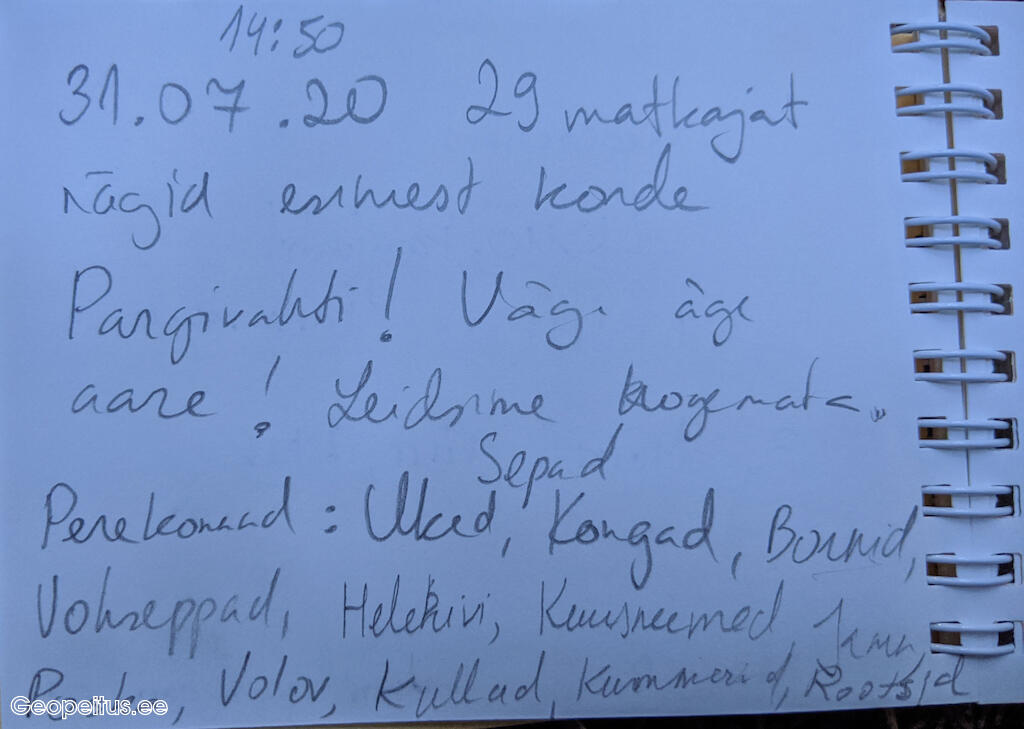 14:50
31.07.20 29 matkajat
nägid esimest korda
Pargivahti! Väga äge
aare! Leidsime kogemata.
Sepad
Perekonnad: Uked, Kongad, Bornid,
Vohseppad, Helekivi, Kuusneemed,
Volov, Kullad, Kummerid, Rootsid
Geopeitus.ee